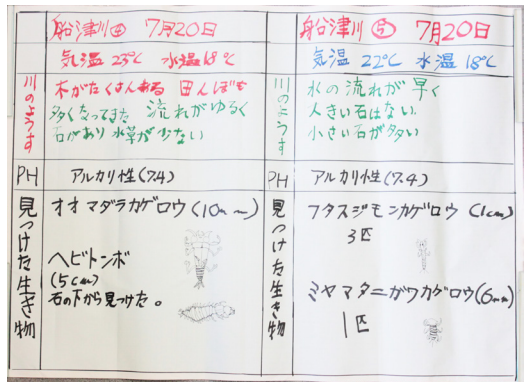 船津川④ 7月20日
気温23℃ 水温18℃
川のようす
木がたくさんある 田んぼも
多くなってきた 流れがゆるく
石があり 水草が少ない
PH
アルカリ性(7.4)
見つけた生き物
オオマダラカゲロウ(10mm)
ヘビトンボ
(5cm)
石の下から見つけた。
船津川⑤ 7月20日
気温 22℃ 水温 18℃
川のようす
水の流れが早く
大きい石はない
小さい石が多い
PH
アルカリ性(7.4)
見つけた生き物
フタスジモンカゲロウ(1cm)
3匹
ミヤマタニガワカゲロウ(6mm)
1匹